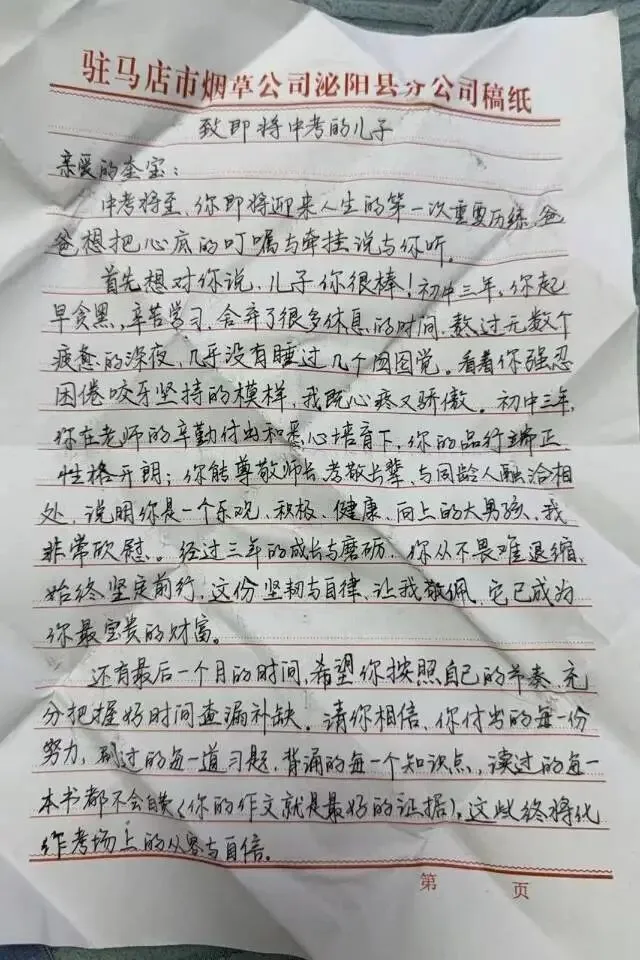 驻马店市烟草公司泌阳县分公司稿纸
致即将中考的儿子
亲爱的奎宝：
中考将至，你即将迎来人生的第一次重要历练，爸
爸想把心底的叮嘱与牵挂说与你听。
首先想对你说，儿子你很棒！初中三年，你起
早贪黑，辛苦学习，舍弃了很多休息的时间，熬过无数个
疲惫的深夜，几乎没有睡过几个囫囵觉。看着你强忍
困倦咬牙坚持的模样，我既心疼又骄傲。初中三年，
你在老师的辛勤付出和悉心培育下，你的品行端正、
性格开朗；你能尊敬师长、孝敬长辈、与同龄人融洽相
处，说明你是一个乐观、积极、健康、向上的大男孩，我
非常欣慰。经过三年的成长与磨砺，你从不畏难退缩，
始终坚定前行，这份坚韧与自律，让我敬佩，它已成为
你最宝贵的财富。
还有最后一个月的时间，希望你按照自己的节奏，充
分把握好时间查漏补缺。请你相信，你付出的每一份
努力，刷过的每一道习题，背诵的每一个知识点，读过的每一
本书都不会（你的作文就是最好的证据），这些终将化
作考场上的从容与自信。
第 页